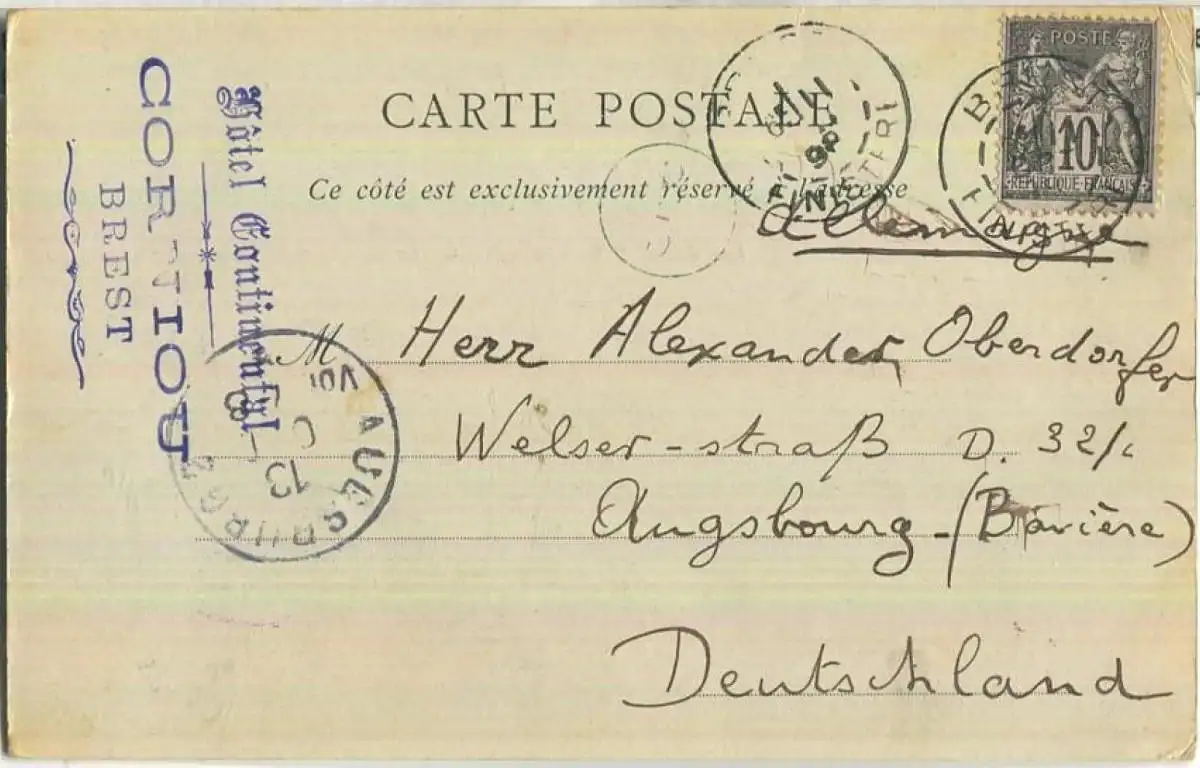 CARTE POSTALE
Ce côté est exclusivement réservé à l'adresse
Allemagne
POSTE
10
REPUBLIQUE FRANÇAISE
FINISTERE
M Herr Alexander Oberdorfer
Welser-straß D. 32/c
Augsbourg - (Bavière)
Deutschland
Hôtel Continental
CORTIOU
BREST
AUGSBURG 2
13